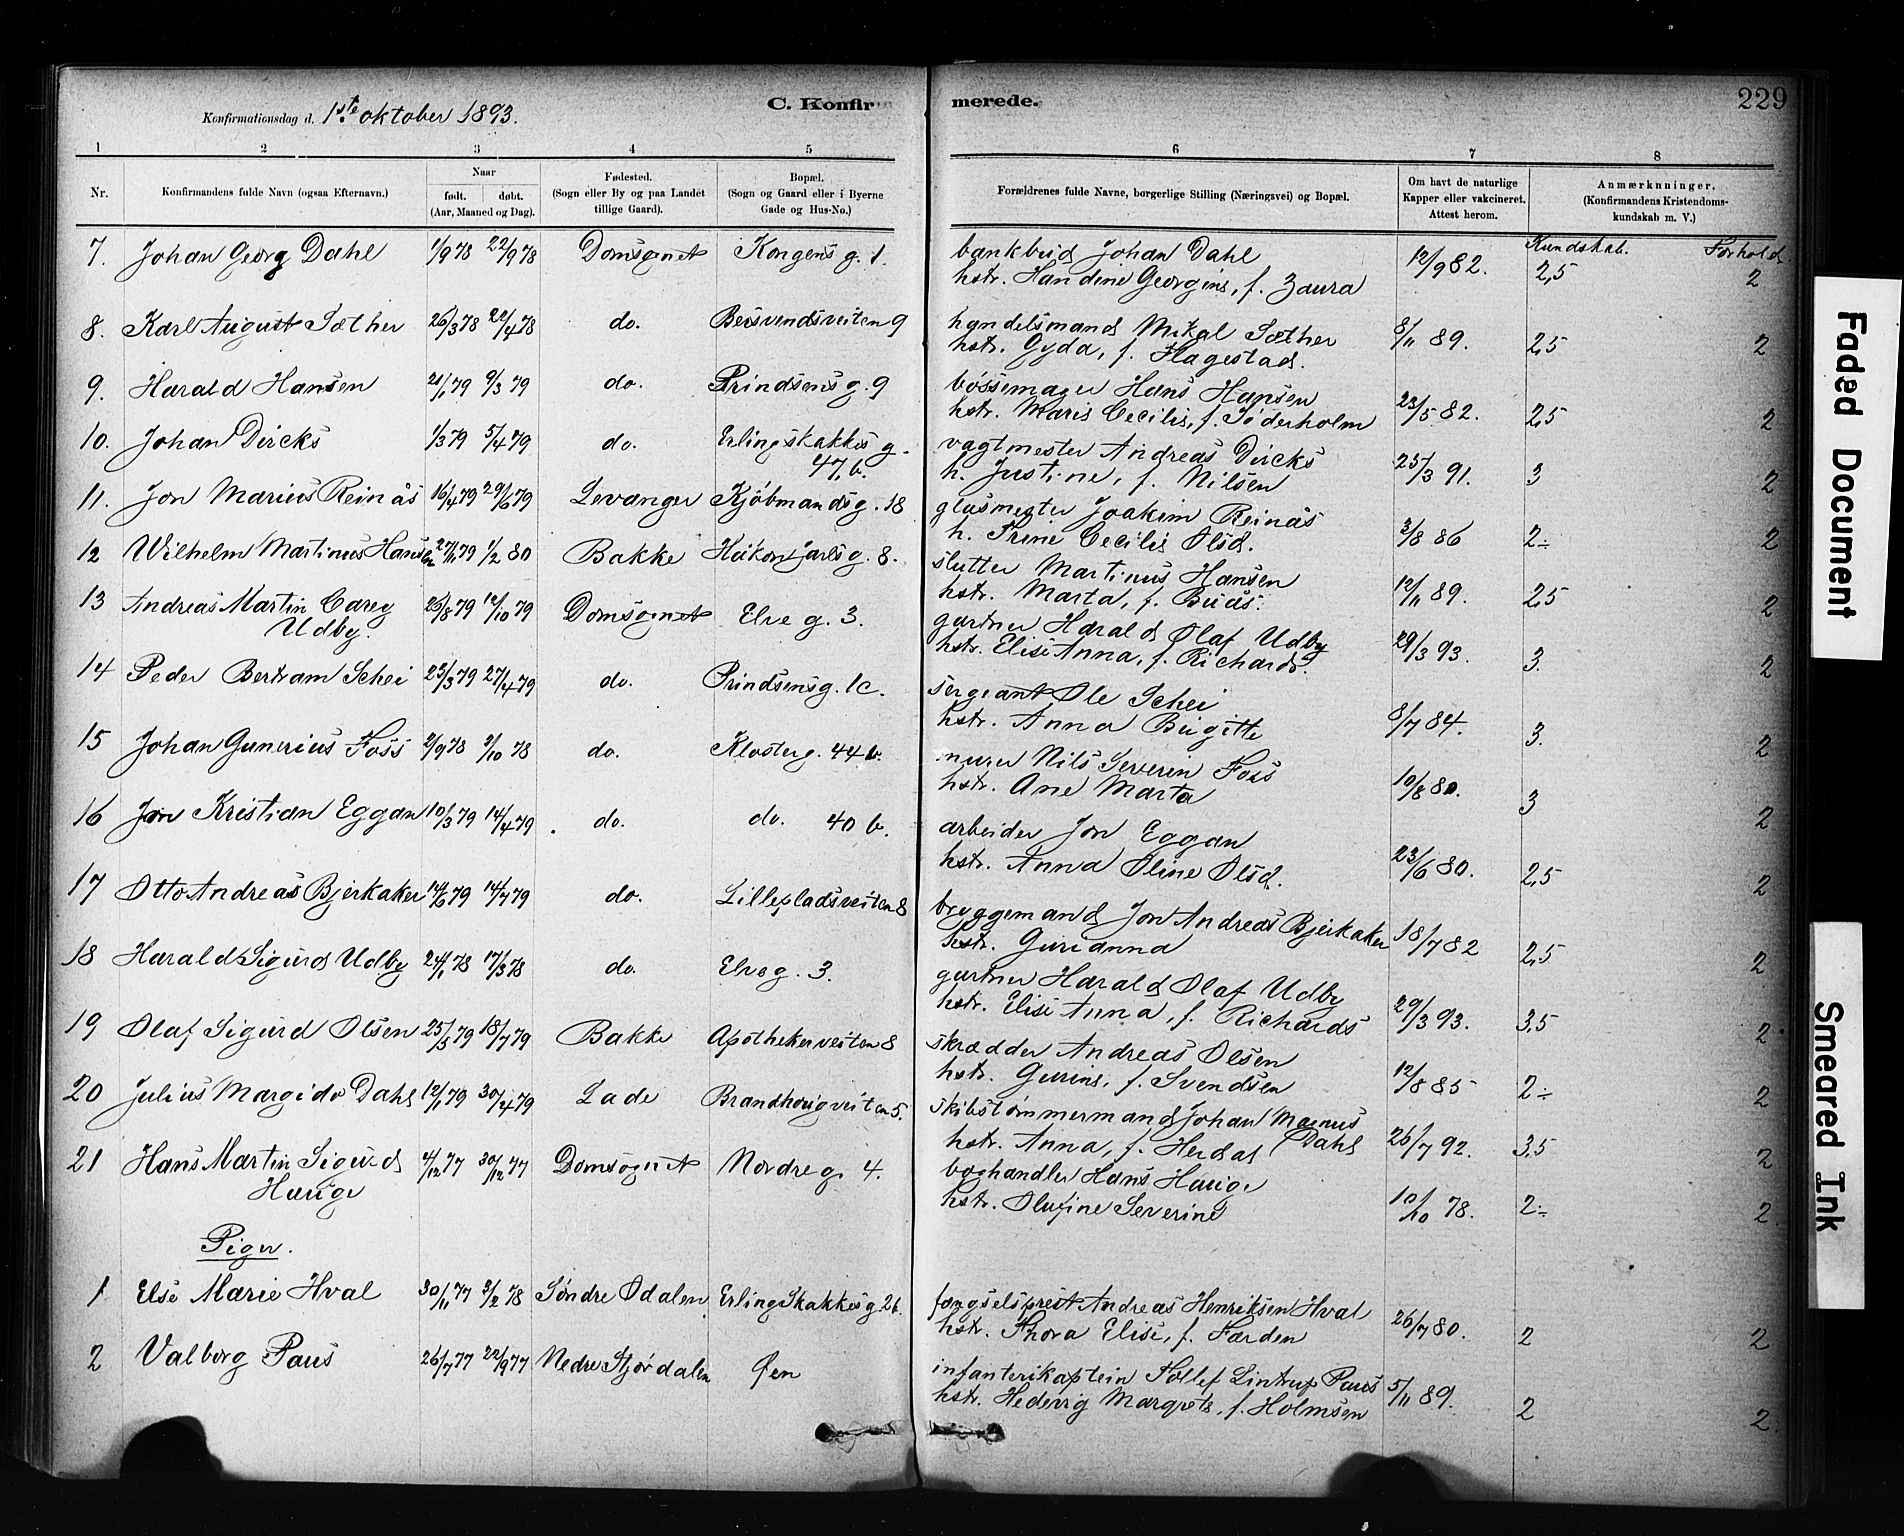 Konfirmationsdag d. 1ste oktober 1893.
C. Konfirmerede.
229
1 2 3 4 5 6 7 8
Nr.
Konfirmandens fulde Navn (ogsaa Efternavn.)
Naar
født. døbt.
(Aar, Maaned og Dag).
Fødested.
(Sogn eller By og paa Landet
tillige Gaard).
Bopæl.
(Sogn og Gaard eller i Byerne
Gade og Hus-No.)
Forældrenes fulde Navne, borgerlige Stilling (Næringsvei) og Bopæl.
Om havt de naturlige
Kapper eller vakcineret.
Attest herom.
Anmærkninger.
(Konfirmandens Kristendoms-
kundskab m. V.)
Kundskab. Forhold.
7. Johan Georg Dahl 1/9 78 22/9 78 Domsognet Kongens g. 1. bankbud Johan Dahl
hstr. Handine Georgine, f. Zaura 12/9 82. 2,5 2
8. Karl August Sæther 26/3 78 22/4 78 do. Beisvendsveiten 9 handelsmand Mikal Sæther
hstr. Gyda, f. Hagestad. 8/11 89. 2,5 2
9. Harald Hansen 21/1 79 9/3 79 do. Prindsensg. 9 bøssemager Hans Hansen
hstr. Maris Cecilis, f. Söderholm 23/5 82. 2,5 2
10. Johan Dircks 1/3 79 5/4 79 do. Erlingskakkes g.
47, b. vagtmester Andreas Dircks
h. Justine, f. Nilsen 25/3 91. 3 2
11. Jon Marius Reinås 16/4 79 29/6 79 Levanger Kjøbmandsg. 18 glasmester Joakim Reinås
h. Trine Cecilis Olsd. 3/8 86 2÷ 2
12 Wilhelm Martinus Hansen 27/11 79 1/2 80 Bakke Håkon jarls g. 8. slutter Martinus Hansen
hstr. Marta, f. Buås. 12/11 89. 2,5 2
13 Andreas Martin Carey
Udby. 25/8 79 12/10 79 Domsognet Elve g. 3. gartner Harald Olaf Udby
hstr. Elise Anna, f. Richards. 29/3 93. 3. 2
14 Peder Bertram Schei 23/3 79 27/4 79 do. Prindsensg. 1c. sergeant Ole Schei
hstr. Anna Birgitte 8/7 84. 3. 2
15 Johan Gunerius Foss 2/9 78 2/10 78 do. Klosterg. 44 b. murer Nils Severin Foss
hstr. Ane Marta 10/8 80. 3 2
16 Jon Kristian Eggan 10/3 79 14/4 79 do. do. 40 b. arbeider Jon Eggan
hstr. Anna Oline Olsd. 23/6 80. 2,5 2
17 Otto Andreas Bjerkaker 14/6 79 14/7 79 do. Lillepladsveiten 8 bryggemand Jon Andreas Bjerkaker
hstr. Gurianna 18/7 82 2,5 2
18 Harald Sigurd Udby 24/1 78 17/3 78 do. Elveg. 3. gartner Harald Olaf Udby
hstr. Elise Anna, f. Richards 29/3 93. 3,5 2
19 Olaf Sigurd Olsen 25/5 79 18/7 79 Bakke Apothekerveiten 8 skrædder Andreas Olsen
hstr. Gurine, f. Svendsen 12/8 85 2÷ 2
20 Julius Margido Dahl 12/1 79 30/4 79 Lade Brandhougveiten 5. skibstømmermand Johan Magnus
Dahl
hstr. Anna, f. Herdal 26/7 92. 3,5 2
21 Hans Martin Sigurd
Hauge 4/12 77 30/12 77 Domsognet Nordre g. 4. boghandler Hans Hauge
hstr. Olufine Severine 10/10 78. 2÷ 2
Piger.
1 Else Marie Hval 30/11 77 3/2 78 Søndre Odalen Erling Skakkes g. 26. fængselsprest Andreas Henriksen Hval
hstr. Thora Elise, f. Færden 26/7 80. 2 2
2 Valborg Paus 26/7 77 22/9 77 Nedre Stjørdalen Øen infanterikaptein Tollef Lintrup Paus
hstr. Hedevig Margrete, f. Holmsen 5/11 89. 2 2.
Faded Document
Smeared Ink